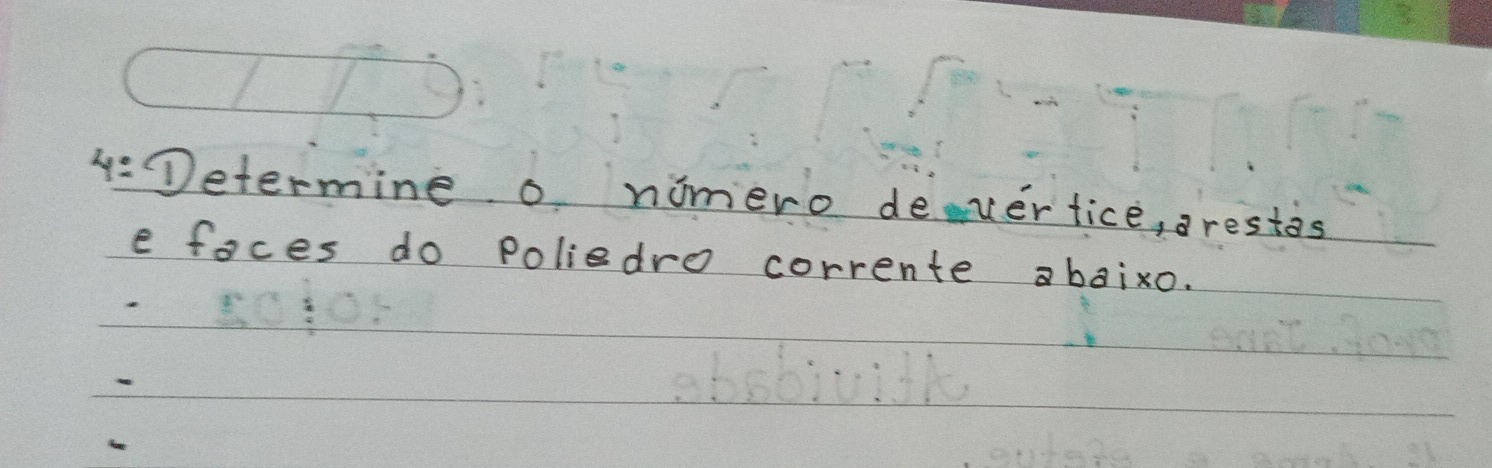 4: Determine o número de vértice, arestas
e faces do Poliedro corrente abaixo.
-
-
-